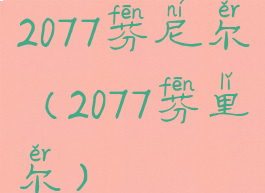 fēn ní ěr
2077芬尼尔
fēn lǐ
(2077芬里
ěr
尔)